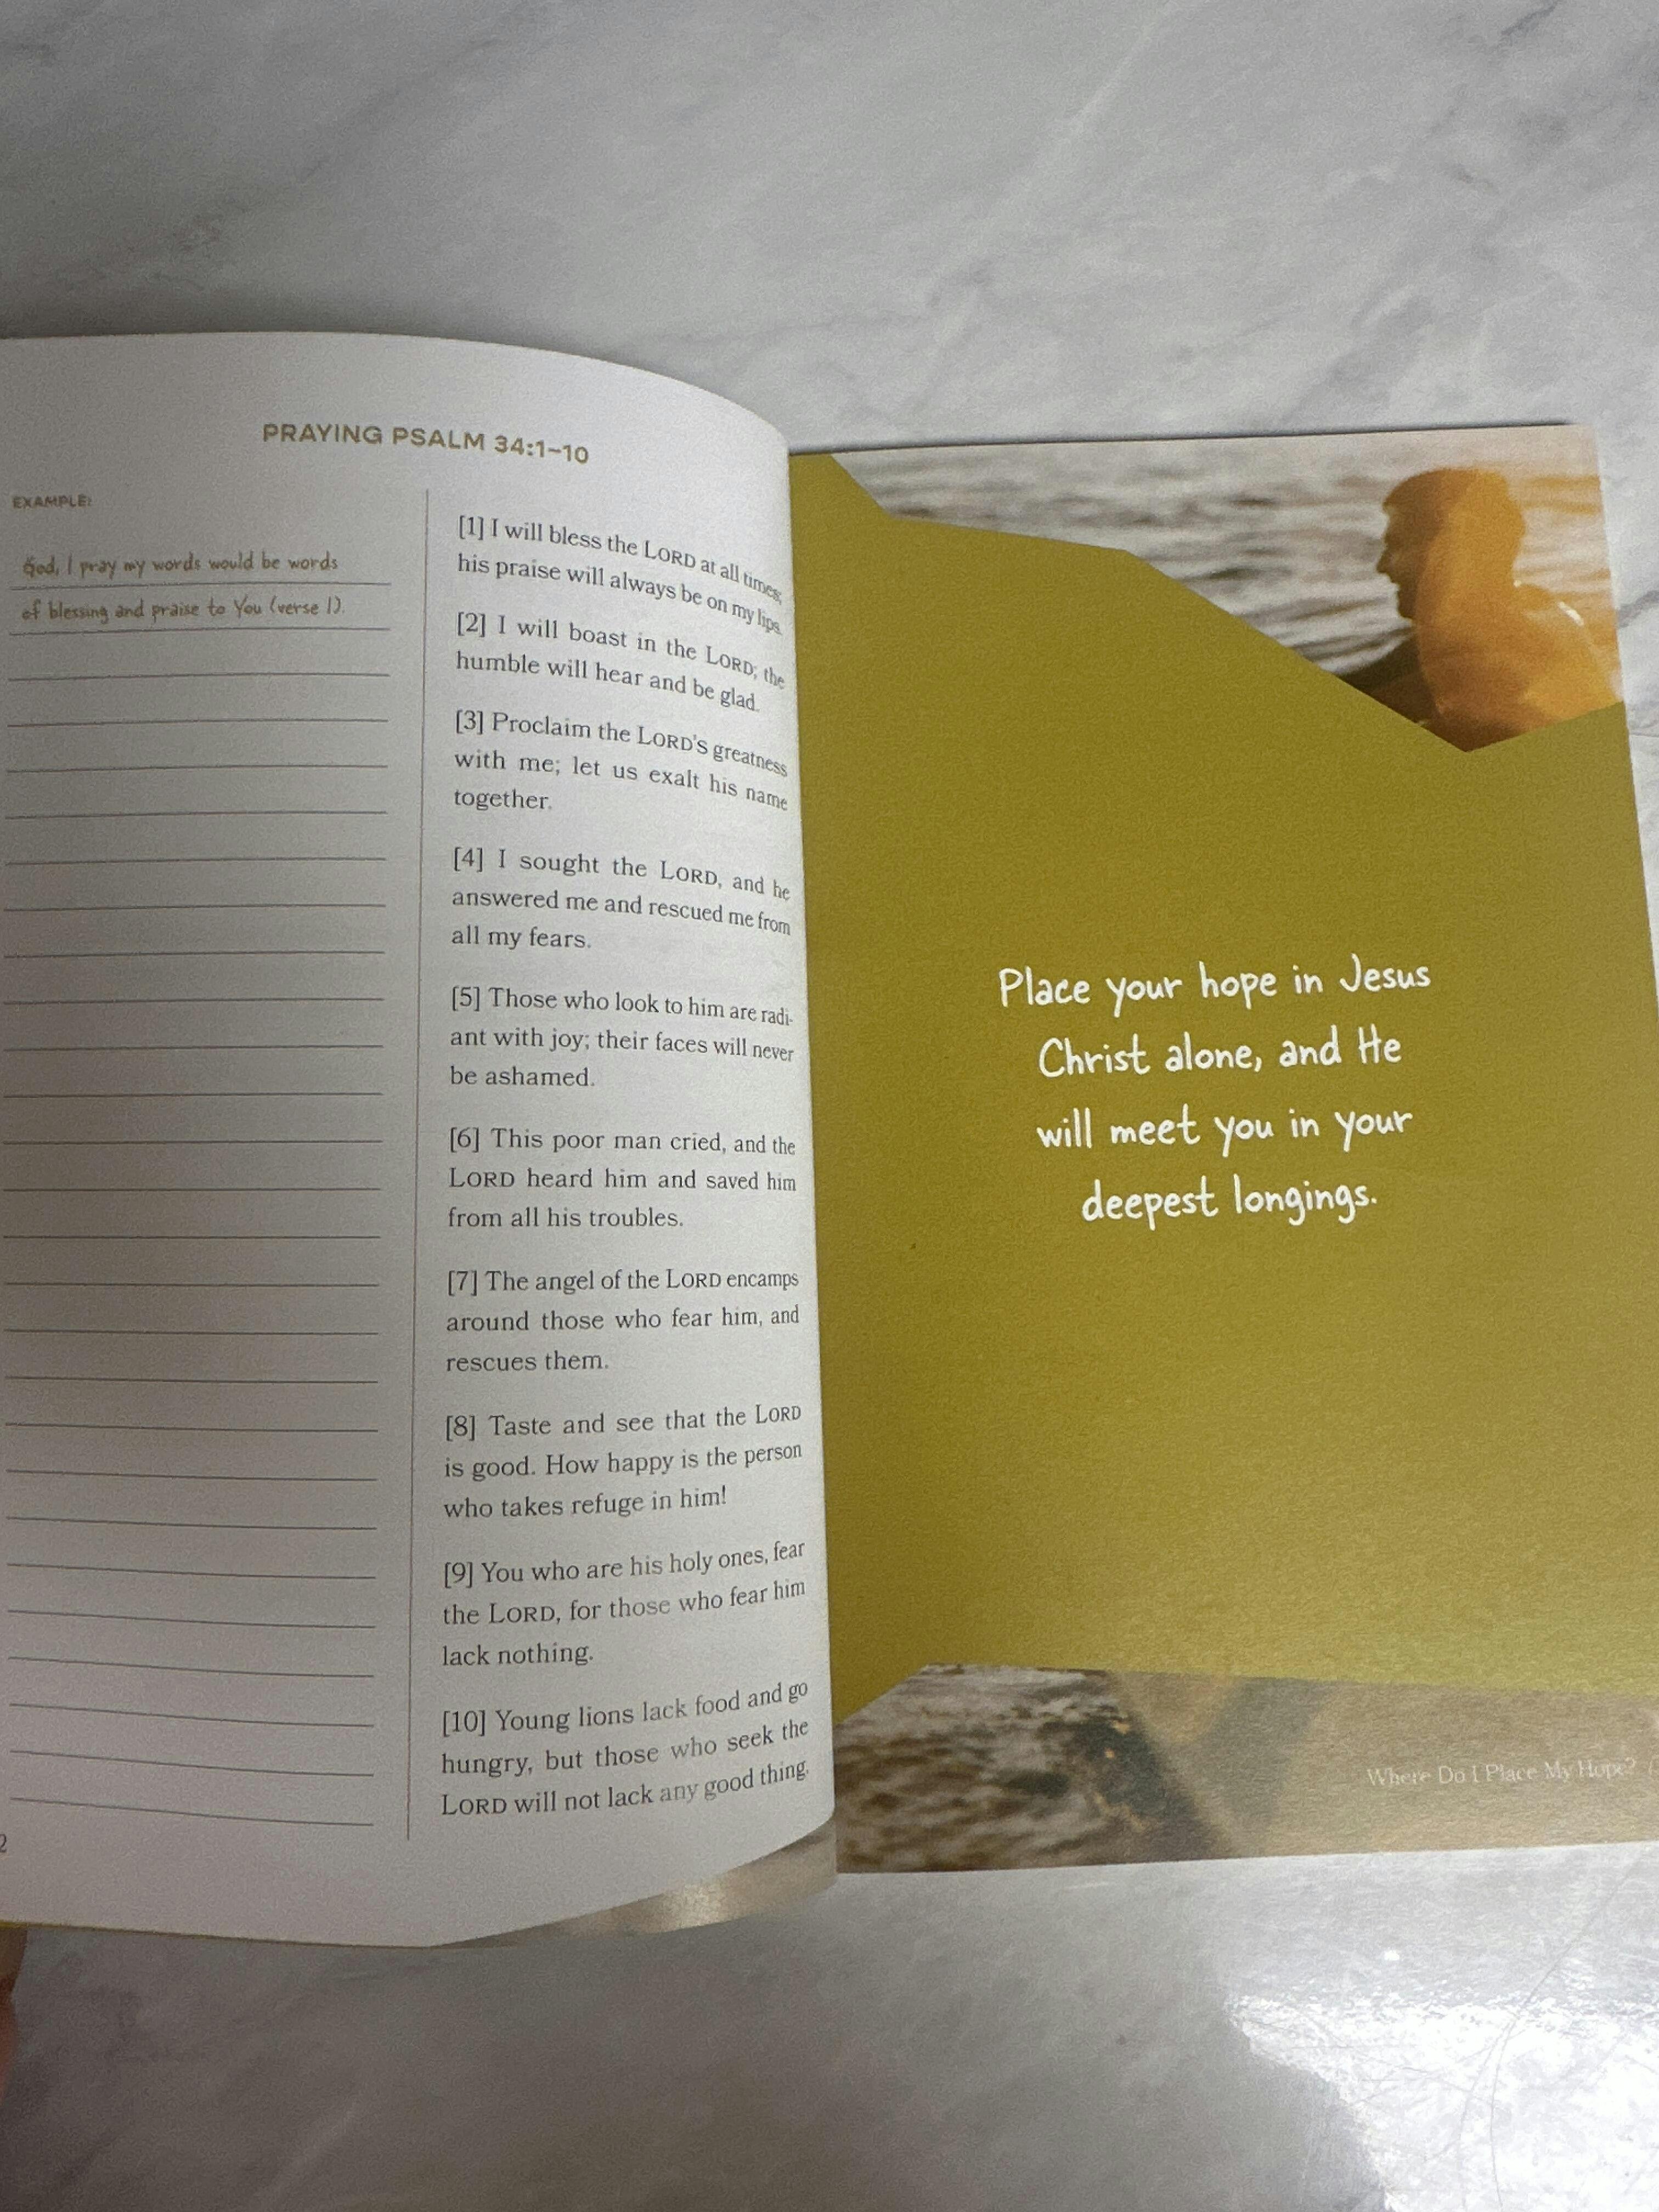 PRAYING PSALM 34:1–10
EXAMPLE:
God, I pray my words would be words
of blessing and praise to You (verse 1).
[1] I will bless the LORD at all times;
his praise will always be on my lips.
[2] I will boast in the LORD; the
humble will hear and be glad.
[3] Proclaim the LORD's greatness
with me; let us exalt his name
together.
[4] I sought the LORD, and he
answered me and rescued me from
all my fears.
[5] Those who look to him are radi-
ant with joy; their faces will never
be ashamed.
[6] This poor man cried, and the
LORD heard him and saved him
from all his troubles.
[7] The angel of the LORD encamps
around those who fear him, and
rescues them.
[8] Taste and see that the LORD
is good. How happy is the person
who takes refuge in him!
[9] You who are his holy ones, fear
the LORD, for those who fear him
lack nothing.
[10] Young lions lack food and go
hungry, but those who seek the
LORD will not lack any good thing.
2
Place your hope in Jesus
Christ alone, and He
will meet you in your
deepest longings.
Where Do I Place My Hope? /